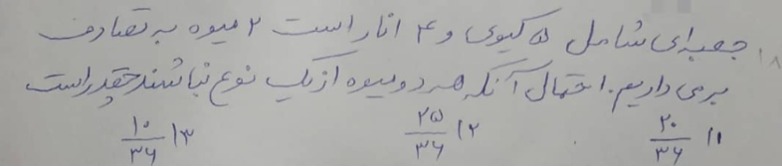 ۱۸, جعبه‌ای شامل ۵ کیوی و ۴ انار است ۲ میوه به تصادف
برمی داریم. احتمال آنکه هر دو میوه از یک نوع نباشند چقدر است
۱) ۲۰/۳۶ ۲) ۲۵/۳۶ ۳) ۱۰/۳۶